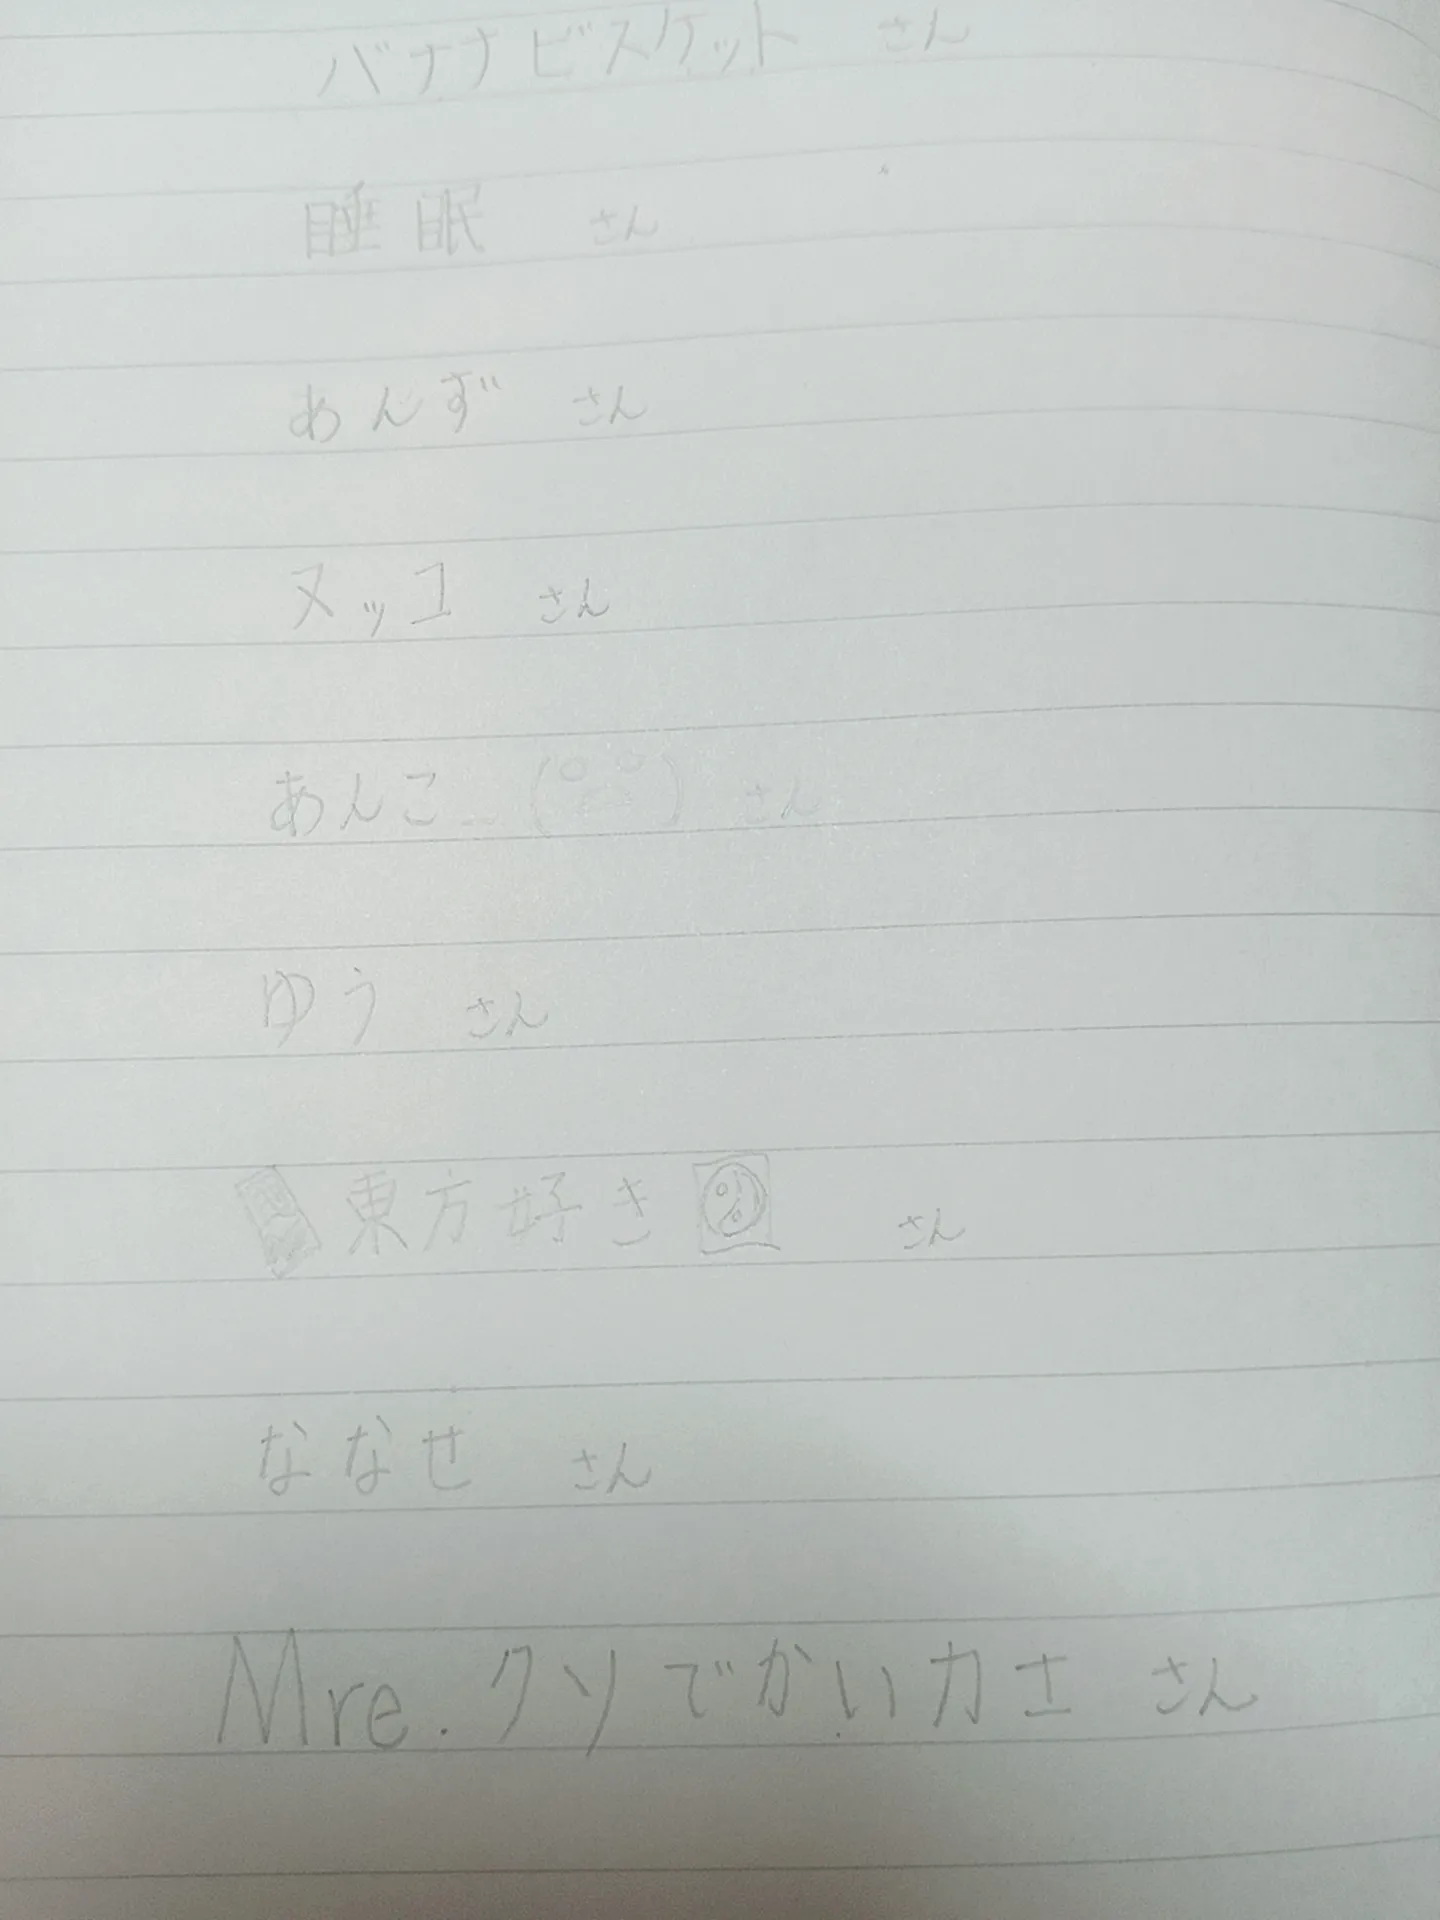 バナナビスケット さん
睡眠 さん
あんず さん
ヌッコ さん
あんこ さん
ゆう さん
東方好き さん
ななせ さん
Mre.クソでかい力士 さん